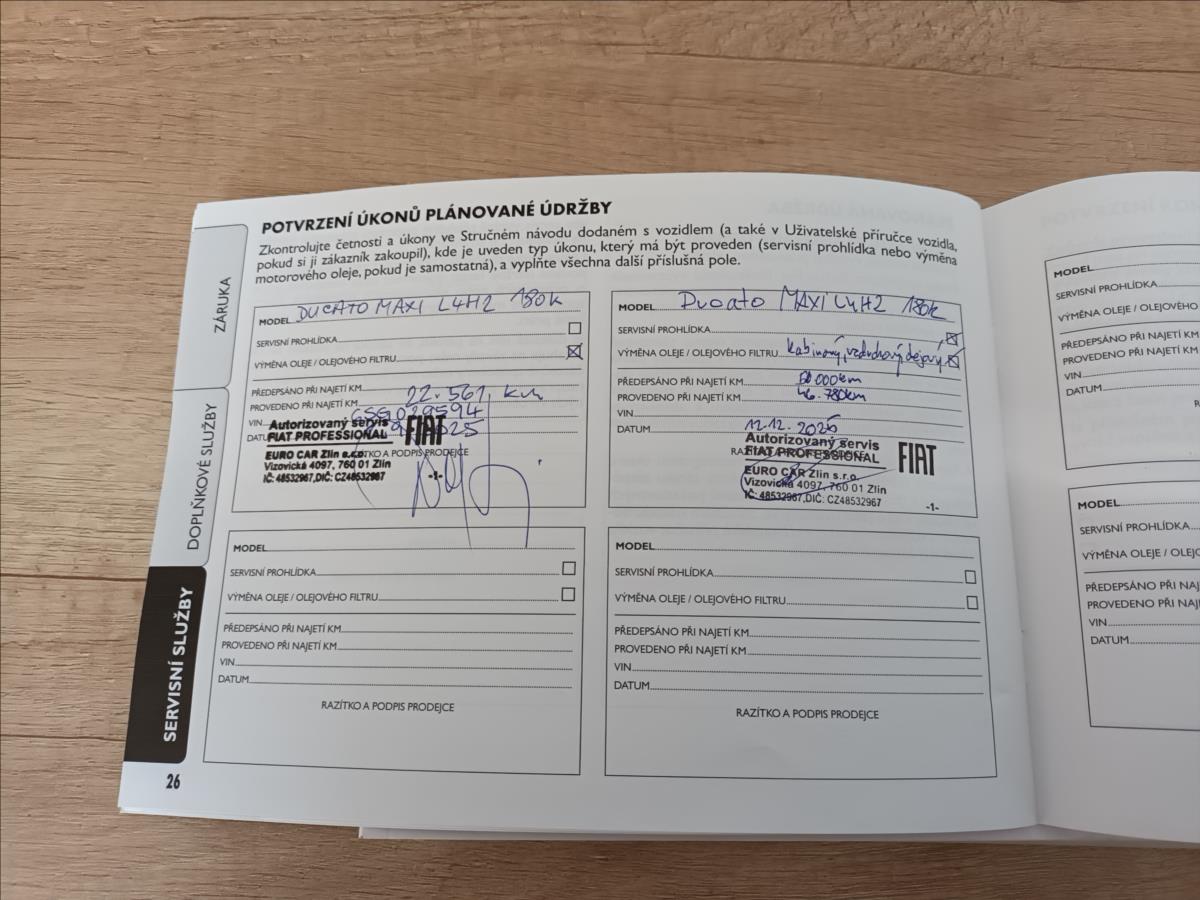 POTVRZENÍ ÚKONŮ PLÁNOVANÉ ÚDRŽBY
Zkontrolujte četnosti a úkony ve Stručném návodu dodaném s vozidlem (a také v Uživatelské příručce vozidla,
pokud si ji zákazník zakoupil), kde je uveden typ úkonu, který má být proveden (servisní prohlídka nebo výměna
motorového oleje, pokud je samostatná), a vyplňte všechna další příslušná pole.
ZÁRUKA
DOPLŇKOVÉ SLUŽBY
SERVISNÍ SLUŽBY
MODEL DUCATO MAXI L4H2 180k
SERVISNÍ PROHLÍDKA
VÝMĚNA OLEJE / OLEJOVÉHO FILTRU
PŘEDEPSÁNO PŘI NAJETÍ KM
PROVEDENO PŘI NAJETÍ KM 22.561 km
VIN
Autorizovaný servis
FIAT PROFESSIONAL
FIAT
EURO CAR Zlín s.r.o.
Vizovická 4097, 760 01 Zlín
IČ: 48532967, DIČ: CZ48532967
-1-
A PODPIS PRODEJCE
MODEL Ducato MAXI L4H2 180k
SERVISNÍ PROHLÍDKA
VÝMĚNA OLEJE / OLEJOVÉHO FILTRU kabinový, vzduchový,
PŘEDEPSÁNO PŘI NAJETÍ KM 000km
PROVEDENO PŘI NAJETÍ KM 46.780km
VIN
DATUM 12.12.
Autorizovaný servis
FIAT PROFESSIONAL
FIAT
EURO CAR Zlín s.r.o.
Vizovická 4097, 760 01 Zlín
IČ: 48532967, DIČ: CZ48532967
-1-
MODEL
SERVISNÍ PROHLÍDKA
VÝMĚNA OLEJE / OLEJOVÉHO FILTRU
PŘEDEPSÁNO PŘI NAJETÍ KM
PROVEDENO PŘI NAJETÍ KM
VIN
DATUM
RAZÍTKO A PODPIS PRODEJCE
MODEL
SERVISNÍ PROHLÍDKA
VÝMĚNA OLEJE / OLEJOVÉHO FILTRU
PŘEDEPSÁNO PŘI NAJETÍ KM
PROVEDENO PŘI NAJETÍ KM
VIN
DATUM
RAZÍTKO A PODPIS PRODEJCE
26
MODEL
SERVISNÍ PROHLÍDKA
VÝMĚNA OLEJE / OLEJOVÉHO
PŘEDEPSÁNO PŘI NAJETÍ KM
PROVEDENO PŘI NAJETÍ KM
VIN
DATUM
MODEL
SERVISNÍ PROHLÍDKA
VÝMĚNA OLEJE /
PŘEDEPSÁNO PŘI
PROVEDENO PŘI
VIN
DATUM